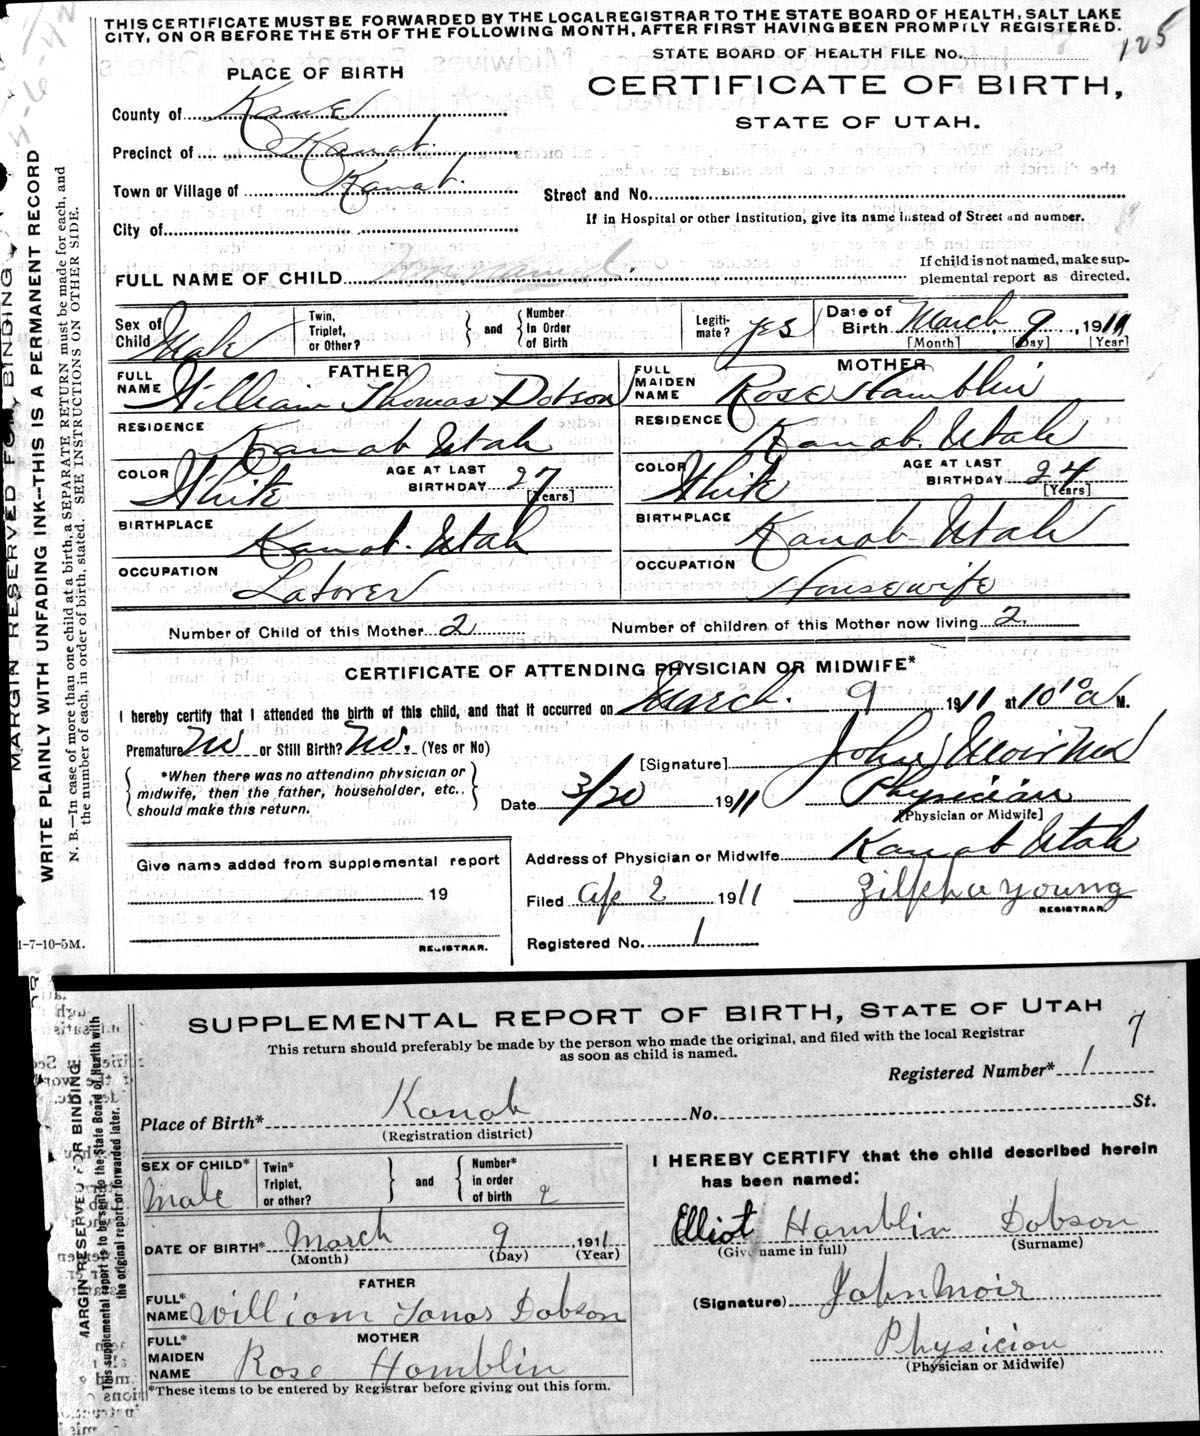 THIS CERTIFICATE MUST BE FORWARDED BY THE LOCAL REGISTRAR TO THE STATE BOARD OF HEALTH, SALT LAKE
CITY, ON OR BEFORE THE 5TH OF THE FOLLOWING MONTH, AFTER FIRST HAVING BEEN PROMPTLY REGISTERED.
STATE BOARD OF HEALTH FILE No. 125
PLACE OF BIRTH
CERTIFICATE OF BIRTH,
STATE OF UTAH.
County of Kane
Precinct of Kanab.
Town or Village of Kanab.
Street and No.
If in Hospital or other Institution, give its name instead of Street and number.
City of
FULL NAME OF CHILD Unnamed.
If child is not named, make sup-
plemental report as directed.
Sex of Child Male
Twin, Triplet, or Other?
and
Number In Order of Birth
Legiti-mate? yes
Date of Birth March 9, 1911
[Month] [Day] [Year]
FATHER
FULL NAME William Thomas Dobson
MOTHER
FULL MAIDEN NAME Rose Hamblin
RESIDENCE Kanab Utah
RESIDENCE Kanab. Utah
COLOR White
AGE AT LAST BIRTHDAY 27 [Years]
COLOR White
AGE AT LAST BIRTHDAY 24 [Years]
BIRTHPLACE Kanab. Utah
BIRTHPLACE Kanab Utah
OCCUPATION Laborer
OCCUPATION Housewife
Number of Child of this Mother 2
Number of children of this Mother now living 2.
CERTIFICATE OF ATTENDING PHYSICIAN OR MIDWIFE*
I hereby certify that I attended the birth of this child, and that it occurred on March. 9 1911 at 10 10 a M.
Premature No or Still Birth? No. (Yes or No)
*When there was no attending physician or
midwife, then the father, householder, etc.,
should make this return.
[Signature] John Moir MD
Date 3/20 1911
Physician
[Physician or Midwife]
Address of Physician or Midwife Kanab Utah
Give name added from supplemental report
19
REGISTRAR.
Filed Ap 2 1911
Zilpha Young
REGISTRAR.
Registered No. 1
1-7-10-5M.
MARGIN RESERVED FOR BINDING
WRITE PLAINLY WITH UNFADING INK--THIS IS A PERMANENT RECORD
N. B.—In case of more than one child at a birth, a SEPARATE RETURN must be made for each, and
the number of each, in order of birth, stated. SEE INSTRUCTIONS ON OTHER SIDE.
SUPPLEMENTAL REPORT OF BIRTH, STATE OF UTAH
7
This return should preferably be made by the person who made the original, and filed with the local Registrar
as soon as child is named.
Registered Number* 1
Place of Birth* Kanab No. St.
(Registration district)
SEX OF CHILD* Male
Twin* Triplet, or other?
and
Number* in order of birth 2
DATE OF BIRTH* March 9 1911
(Month) (Day) (Year)
FATHER
FULL* NAME William Tomas Dobson
MOTHER
FULL* MAIDEN NAME Rose Hamblin
*These items to be entered by Registrar before giving out this form.
I HEREBY CERTIFY that the child described herein
has been named:
Elliot Hamblin Dobson
(Give name in full) (Surname)
(Signature) John Moir
Physician
(Physician or Midwife)
MARGIN RESERVED FOR BINDING
This supplemental report is to be sent to the State Board of Health with
the original report or forwarded later.